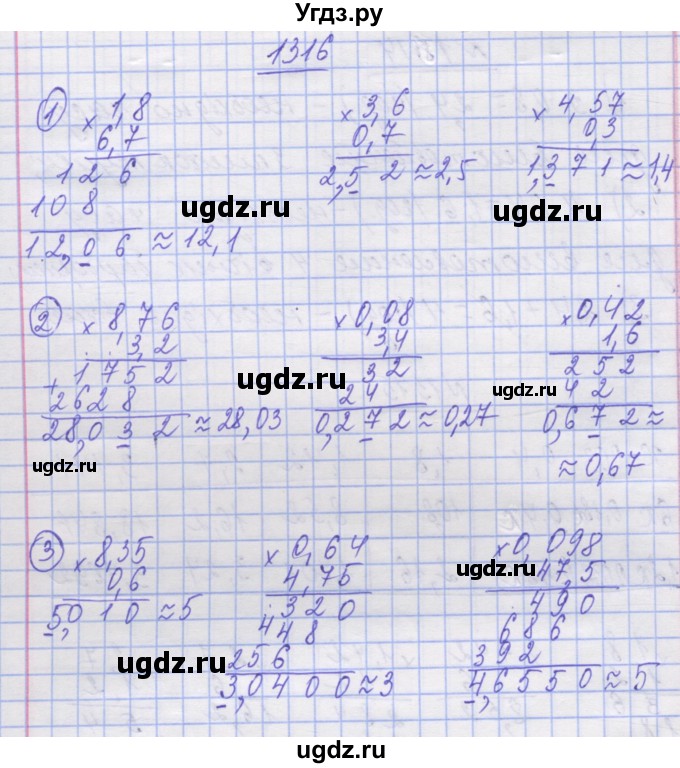 Угдз.ру
1316
1) × 1,8 × 3,6 × 4,57
6,7 0,7 0,3
1 2 6 2,5 2 ≈ 2,5 1,3 7 1 ≈ 1,4
1 0 8
ugdz.ru ugdz.ru
1 2,0 6 ≈ 12,1
2) × 8,76 × 0,08 × 0,42
3,2 3,4 1,6
+ 1 7 5 2 3 2 2 5 2
ugdz.ru ugdz.ru
2 6 2 8 2 4 4 2
28,0 3 2 ≈ 28,03 0,2 7 2 ≈ 0,27 0,6 7 2 ≈
ugdz.ru ≈ 0,67
ugdz.ru
3) × 8,35 × 0,64 × 0,098
0,6 4,75 47,5
ugdz.ru
5,0 1 0 ≈ 5 3 2 0 4 9 0
4 4 8 6 8 6
ugdz.ru ugdz.ru
2 5 6 3 9 2
3,0 4 0 0 ≈ 3 4,6 5 5 0 ≈ 5
ugdz.ru ugdz.ru